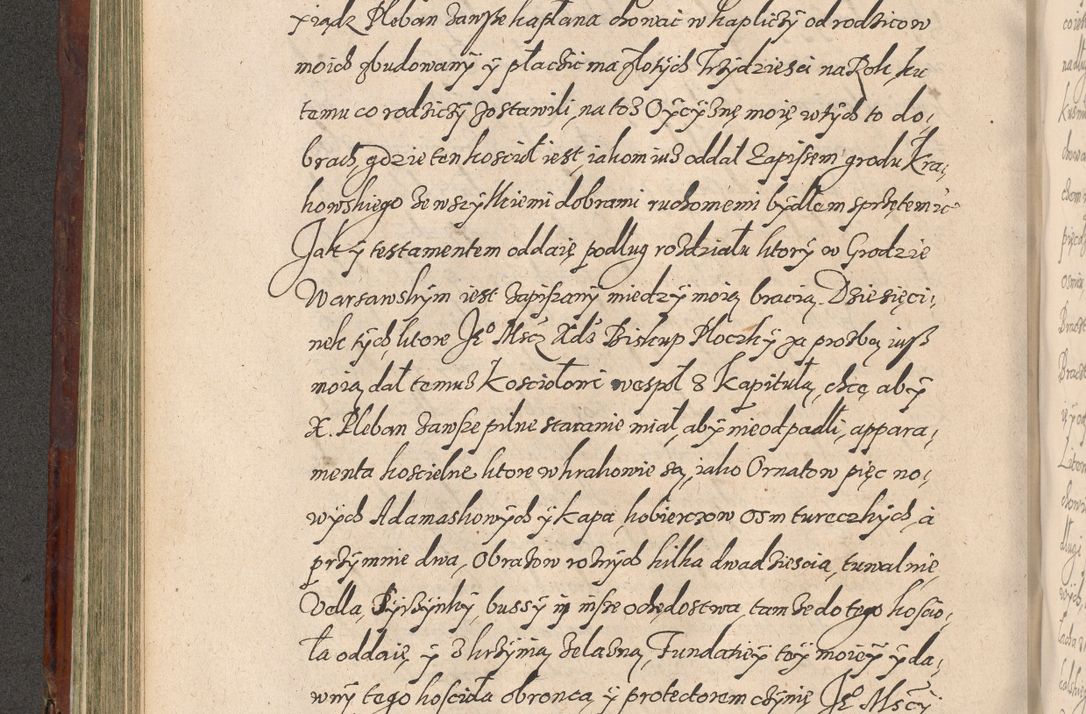 xiądz Pleban zawsze kapłana chować w kapliczÿ od rodzicow
moich zbudowanÿ ÿ płacić ma złotÿch Trzÿdziesci na Rok, ku
temu co rodziczÿ zostawili, na toż Oÿczÿznę moię w tÿch to do,
brach, gdzie ten kosciuł iest, iakom iuż oddał Zapissem grodu Kra,
kowskiego ze wszÿtkiemi dobrami ruchomemi bÿdłem sprzętem
Jak ÿ testamentem oddaię podług rozdziału ktorÿ w Grodzie
Warsawskÿm iest zapiszanÿ miedzÿ moią bracią. Dziesięci,
nek tÿch, ktore Je° Mść Xdz Biskup Płoczkÿ za prozbą iusz
moią dał temuż Kosciołowi wespoł z Kapitułą, chcę abÿ
X. Pleban zawsze pilne staranie miał, abÿ nie odpadli, appara,
menta koscielne ktore w krakowie są, iako Ornatow pięc no,
wÿch Adamaskowÿch ÿ kapa, kobierczow osm tureczkÿch, a
przÿ mnie dwa, Obrazow roznÿch kilka dwadziescia, tuwalnie,
Vella, bussÿ insze ochędostwa, tamże do tego koscio,
ła oddaię ÿ z krzÿnią żelazną, Fundatieÿ teÿ moieÿ ÿ da,
wnÿ tego kosciuła obronca ÿ protectorem czÿnię Je° Mśćÿ